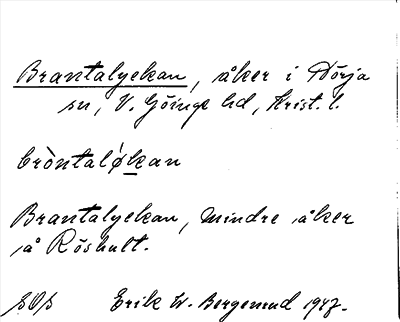 Brantalyekan, åker i Nörja
sn, V. Göinge hd, Krist. l.
bròntaløkan
Brantalyekan, mindre åker
å Röshult.
SOS Erik W. Bergemud 1947.